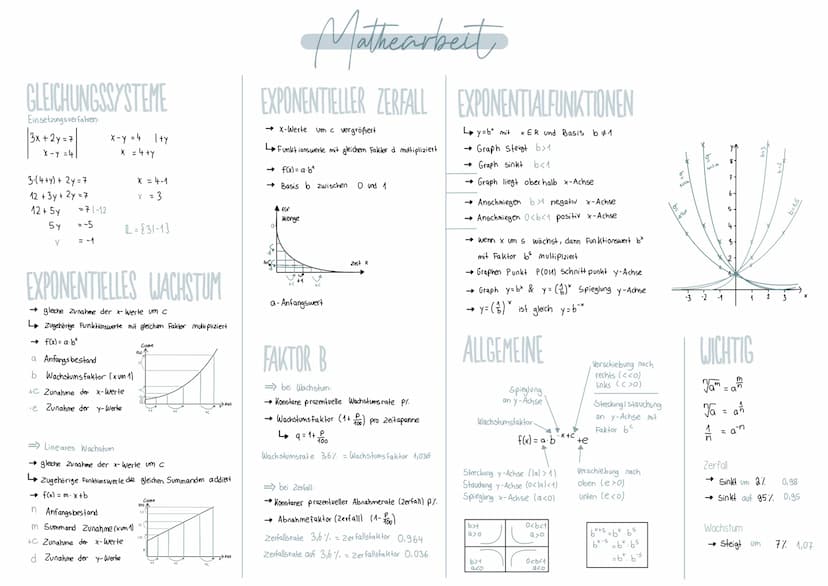 Mathearbeit
GLEICHUNGSSYSTEME
Einsetzungsverfahren
3x + 2y = 7
x - y = 4
x - y = 4 | +y
x = 4+y
3·(4+y) + 2y = 7
12 + 3y + 2y = 7
12 + 5y = 7 | -12
5y = -5
y = -1
x = 4-1
x = 3
𝕃 = {3|-1}
EXPONENTIELLES WACHSTUM
→ gleiche Zunahme der x-Werte um c
↳ zugehörige Funktionswerte mit gleichem Faktor multipliziert
→ f(x) = a·bˣ
a Anfangsbestand
b Wachstumsfaktor (x um 1)
+c Zunahme der x-Werte
·e Zunahme der y-Werte
⇒ Lineares Wachstum
→ gleiche Zunahme der x-Werte um c
↳ zugehörige Funktionswerte die gleichen Summanden addiert
→ f(x) = m·x+b
n Anfangsbestand
m Summand Zunahme (x um 1)
+c Zunahme der x-Werte
d Zunahme der y-Werte
EXPONENTIELLER ZERFALL
→ x-Werte um c vergrößert
↳ Funktionswerte mit gleichem Faktor d multipliziert
→ f(x) = a·bˣ
→ Basis b zwischen 0 und 1
Menge
Zeit x
+1
a - Anfangswert
FAKTOR B
⇒ bei Wachstum
→ Konstane prozentuelle Wachstumsrate p%
→ Wachstumsfaktor (1+ p/100) pro Zeitspanne
↳ q = 1+ p/100
Wachstumsrate 3,6% = Wachstumsfaktor 1,036
⇒ bei Zerfall
→ Konstaner prozentualer Abnahmerate (Zerfall) p%
→ Abnahmefaktor (Zerfall) (1- p/100)
Zerfallsrate 3,6% = Zerfallsfaktor 0.964
Zerfallsrate auf 3,6% = Zerfallsfaktor 0.036
EXPONENTIALFUNKTIONEN
↳ y=bˣ mit x ∈ R und Basis b ≠ 1
→ Graph steigt b>1
→ Graph sinkt b<1
→ Graph liegt oberhalb x-Achse
→ Anschmiegen b>1 negativ x-Achse
→ Anschmiegen 0<b<1 positiv x-Achse
→ wenn x um s wächst, dann Funktionswert bˣ
mit Faktor bˢ multipliziert
→ Graphen Punkt P(0|1) Schnittpunkt y-Achse
→ Graph y=bˣ & y=(1/b)ˣ Spieglung y-Achse
→ y=(1/b)ˣ ist gleich y=b⁻ˣ
y
8
7
6
5
4
3
2
-3 -2 -1 1 2 3 x
ALLGEMEINE
Spieglung
an y-Achse
Wachstumsfaktor
Verschiebung nach
rechts (c<0)
links (c>0)
Streckung/Stauchung
an y-Achse mit
Faktor bᶜ
f(x) = a·b⁻ˣ⁺ᶜ+e
Streckung y-Achse (|a|>1)
Stauchung y-Achse (0<|a|<1)
Spieglung x-Achse (a<0)
Verschiebung nach
oben (e>0)
unten (e<0)
b>1
a>0
0<b<1
a>0
b>1
a<0
0<b<1
a<0
bˣ⁺ˢ = bˣ·bˢ
WICHTIG
ⁿ√aᵐ = a^(m/n)
ⁿ√a = a^(1/n)
1/n = a⁻ⁿ
Zerfall
→ Sinkt um 2% 0,98
→ Sinkt auf 95% 0,95
Wachstum
→ Steigt um 7% 1,07